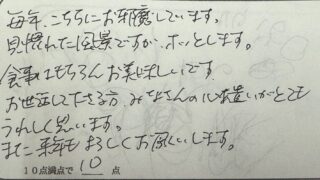 毎年、こちらにお邪魔しています。
見慣れた風景ですが、ホッとします。
食事はもちろんお美味しいです
お世話して下さる方、みなさんの心遣いがとても
うれしく思います。
また来年もよろしくお願いします。
10点満点で 10 点